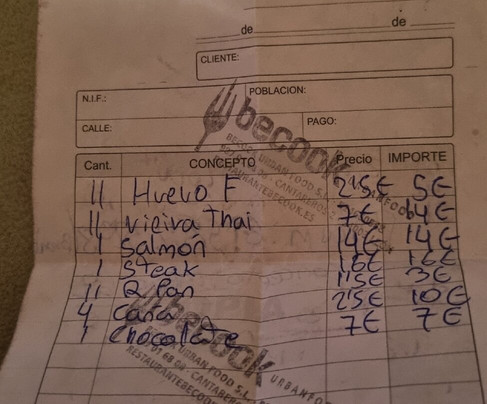 de de
CLIENTE:
N.I.F.: POBLACION:
CALLE: PAGO:
becook
BECOOK URBAN FOOD S.L.
RESTAURANTEBECOOK.ES
Cant. CONCEPTO Precio IMPORTE
11 Huevo F 2'5€ 5€
11 Vieira Thai 7€ 14€
1 Salmón 14€ 14€
1 Steak 16€ 16€
11 R Pan 1'5€ 3€
4 Caña 2'5€ 10€
1 Chocolate 7€ 7€
becook
URBAN FOOD S.L.